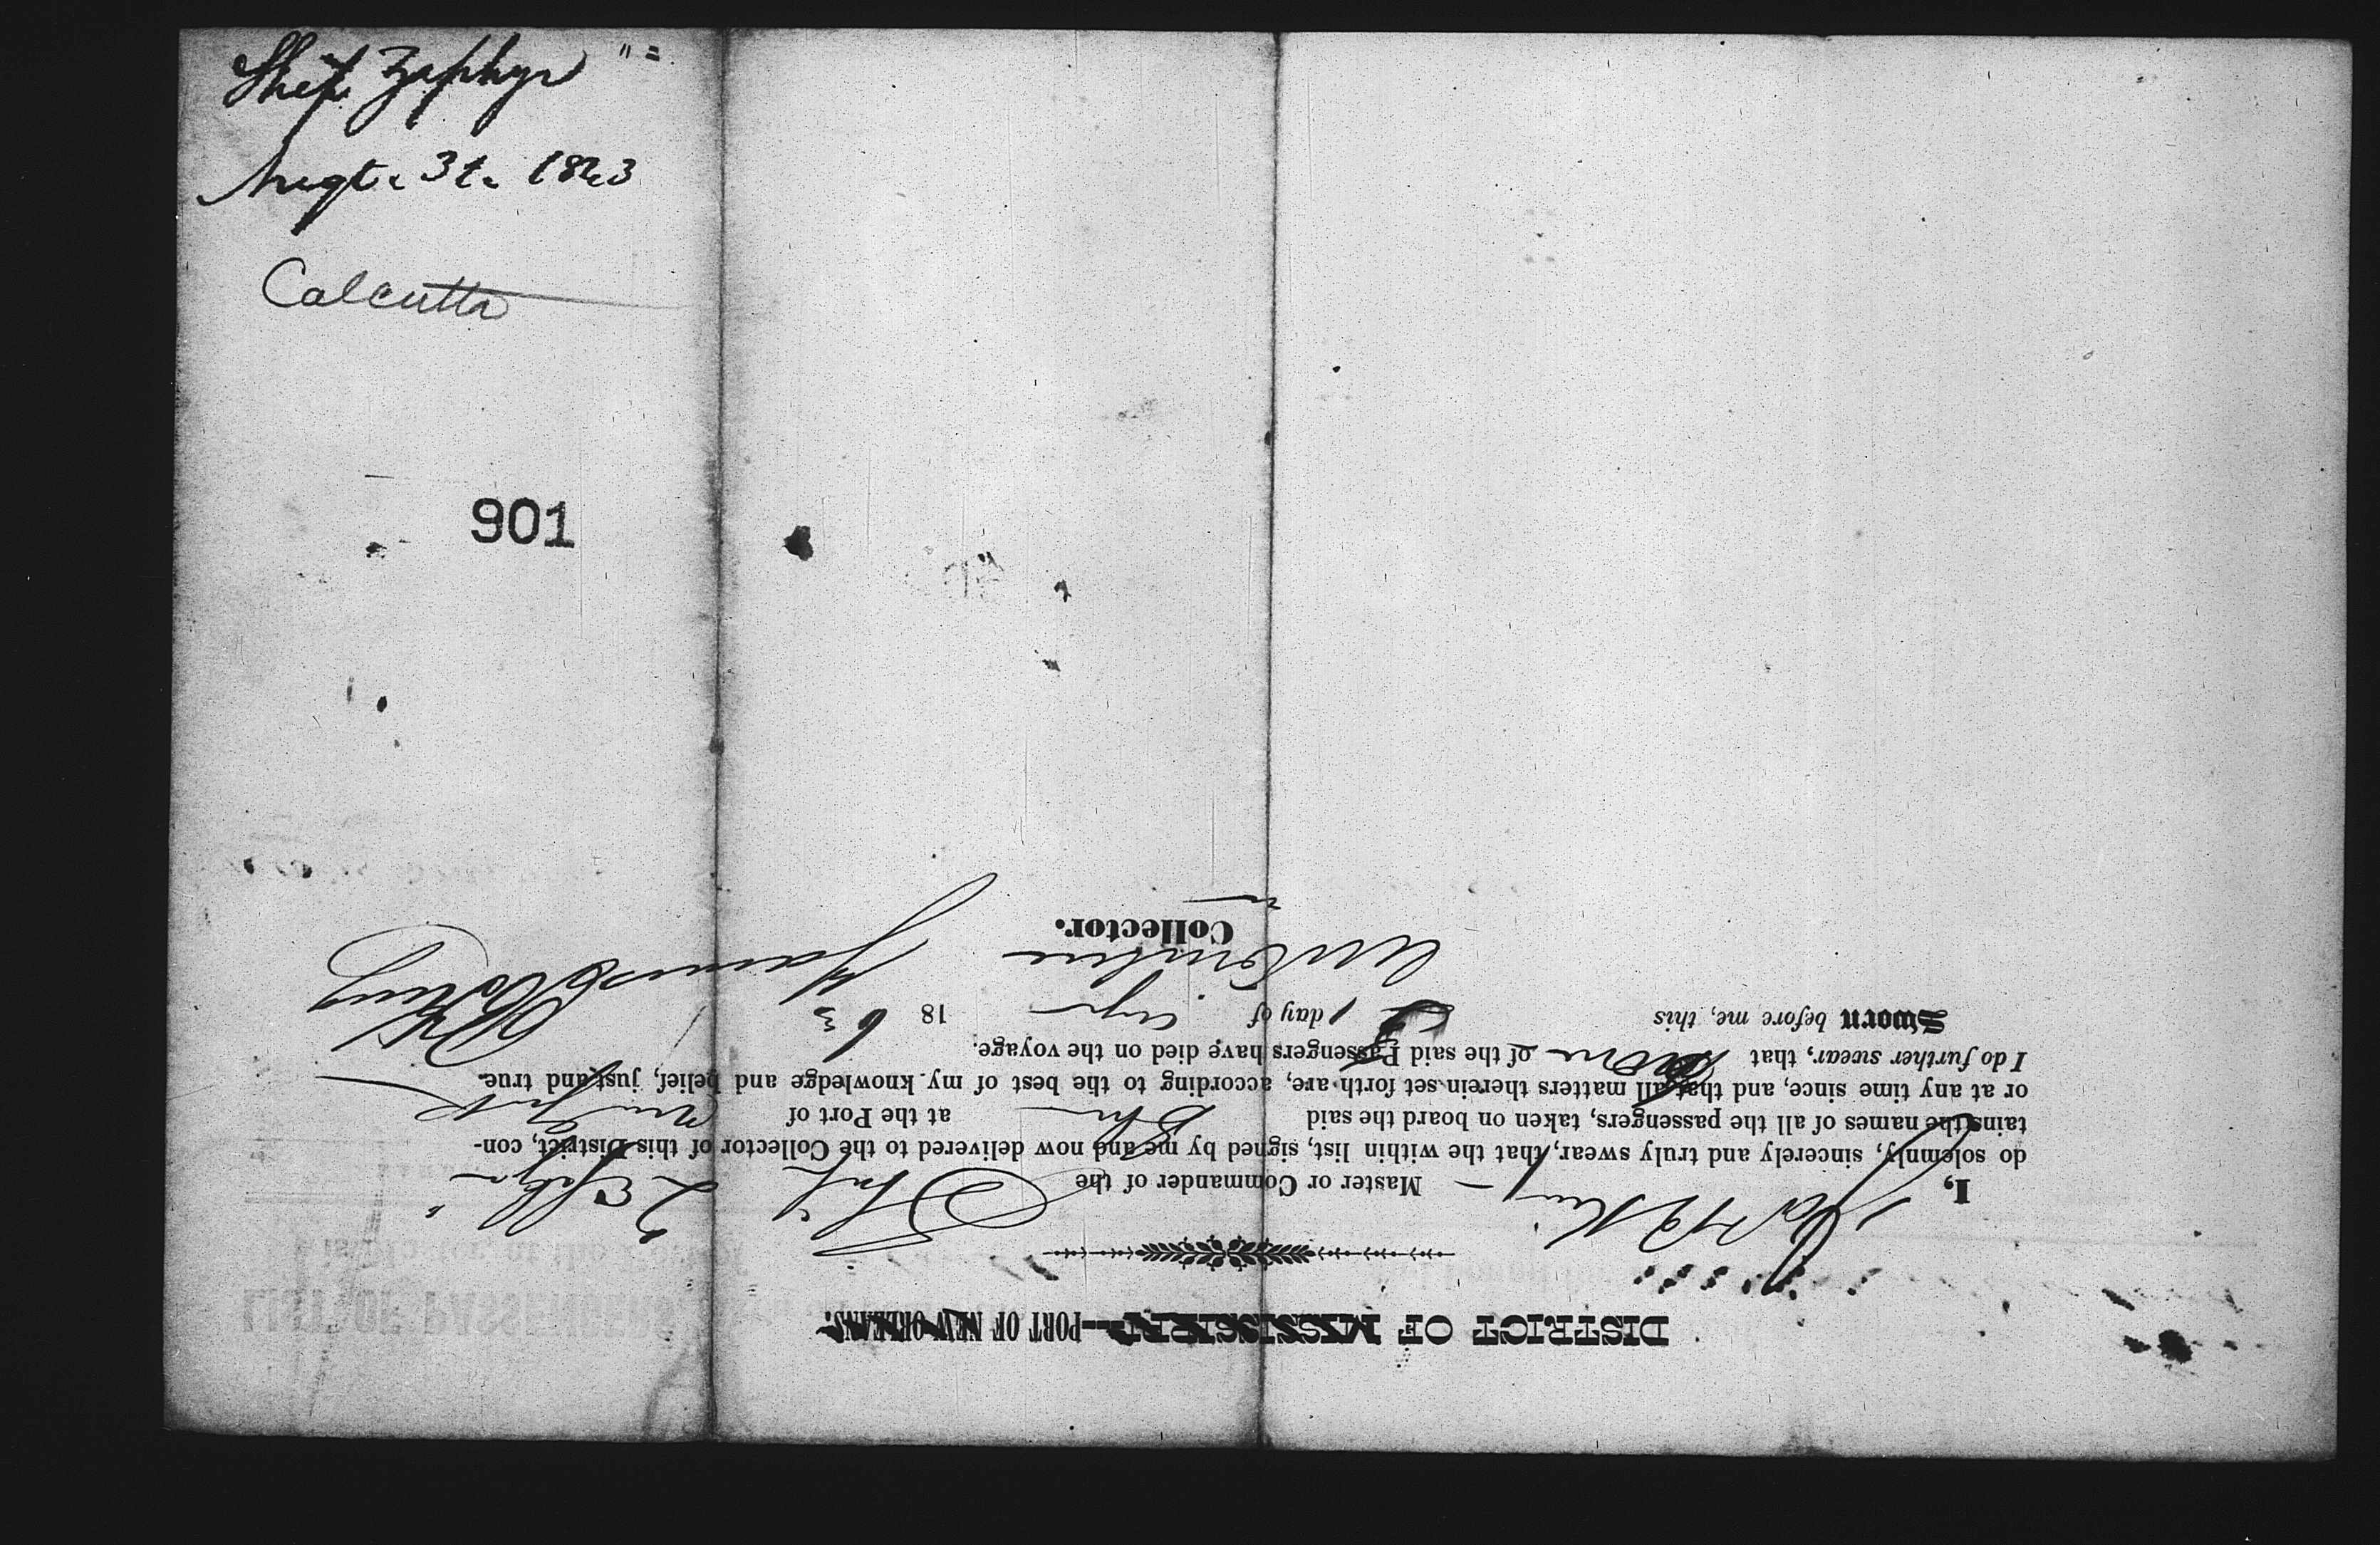 Ship Zephyr " =
Augt. 31. 1863
Calcutta
901
DISTRICT OF MISSISSIPPI—PORT OF NEW ORLEANS.
I, Master or Commander of the Ship Zephyr
do solemnly, sincerely and truly swear, that the within list, signed by me and now delivered to the Collector of this District, con-
tains the names of all the passengers, taken on board the said Ship at the Port of
or at any time since, and that all matters therein set forth are, according to the best of my knowledge and belief, just and true.
I do further swear, that none of the said Passengers have died on the voyage.
Sworn before me, this day of 1863
Collector.